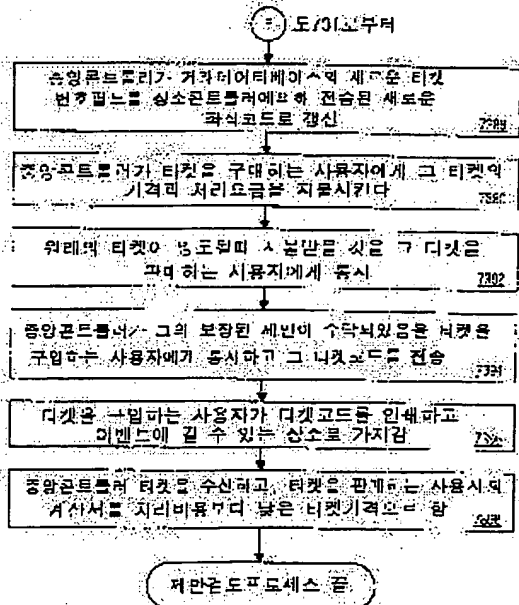 도73f로부터
중앙콘트롤러가 거래데이터베이스의 새로운 티켓
번호필드를 장소콘트롤러에의해 전송된 새로운
좌석코드로 갱신
중앙콘트롤러가 티켓을 구매하는 사용자에게 그 티켓의
가격과 처리요금을 지불시킨다
7390
원래의 티켓이 양도될때 지불받을 것을 그 티켓을
판매하는 사용자에게 통지
7392
중앙콘트롤러가 그의 보장된 제안이 수락되었음을 티켓을
구입하는 사용자에게 통지하고 그 티켓코드를 전송
7394
티켓을 구입하는 사용자가 티켓코드를 인쇄하고
이벤트에 갈 수 있는 장소로 가지감
중앙콘트롤러 티켓을 수신하고, 티켓을 판매하는 사용자의
계산서를 처리비용보다 낮은 티켓가격으로 함
제안검토프로세스 끝